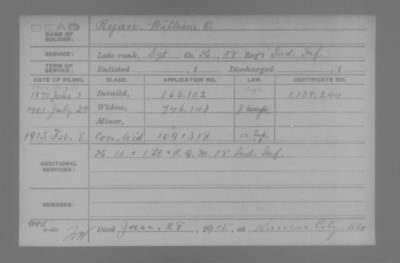 DEAD
NAME OF SOLDIER: Ryan, William D.
SERVICE: Late rank, Sgt Co. H, 58 Reg't Ind. Inf.
TERM OF SERVICE: Enlisted , 1 Discharged , 1
DATE OF FILING. CLASS. APPLICATION NO. LAW. CERTIFICATE NO.
1871 June 3 Invalid, 166.102 1.138.244
July 29 Widow, 746.143
Minor,
1915 Feb. 8 Con. Wid 1091318
ADDITIONAL SERVICES: 1 Lt & R.Q.M. 58 Ind. Inf.
REMARKS:
Died Jan. 28, 1915, at Kansas City, Mo